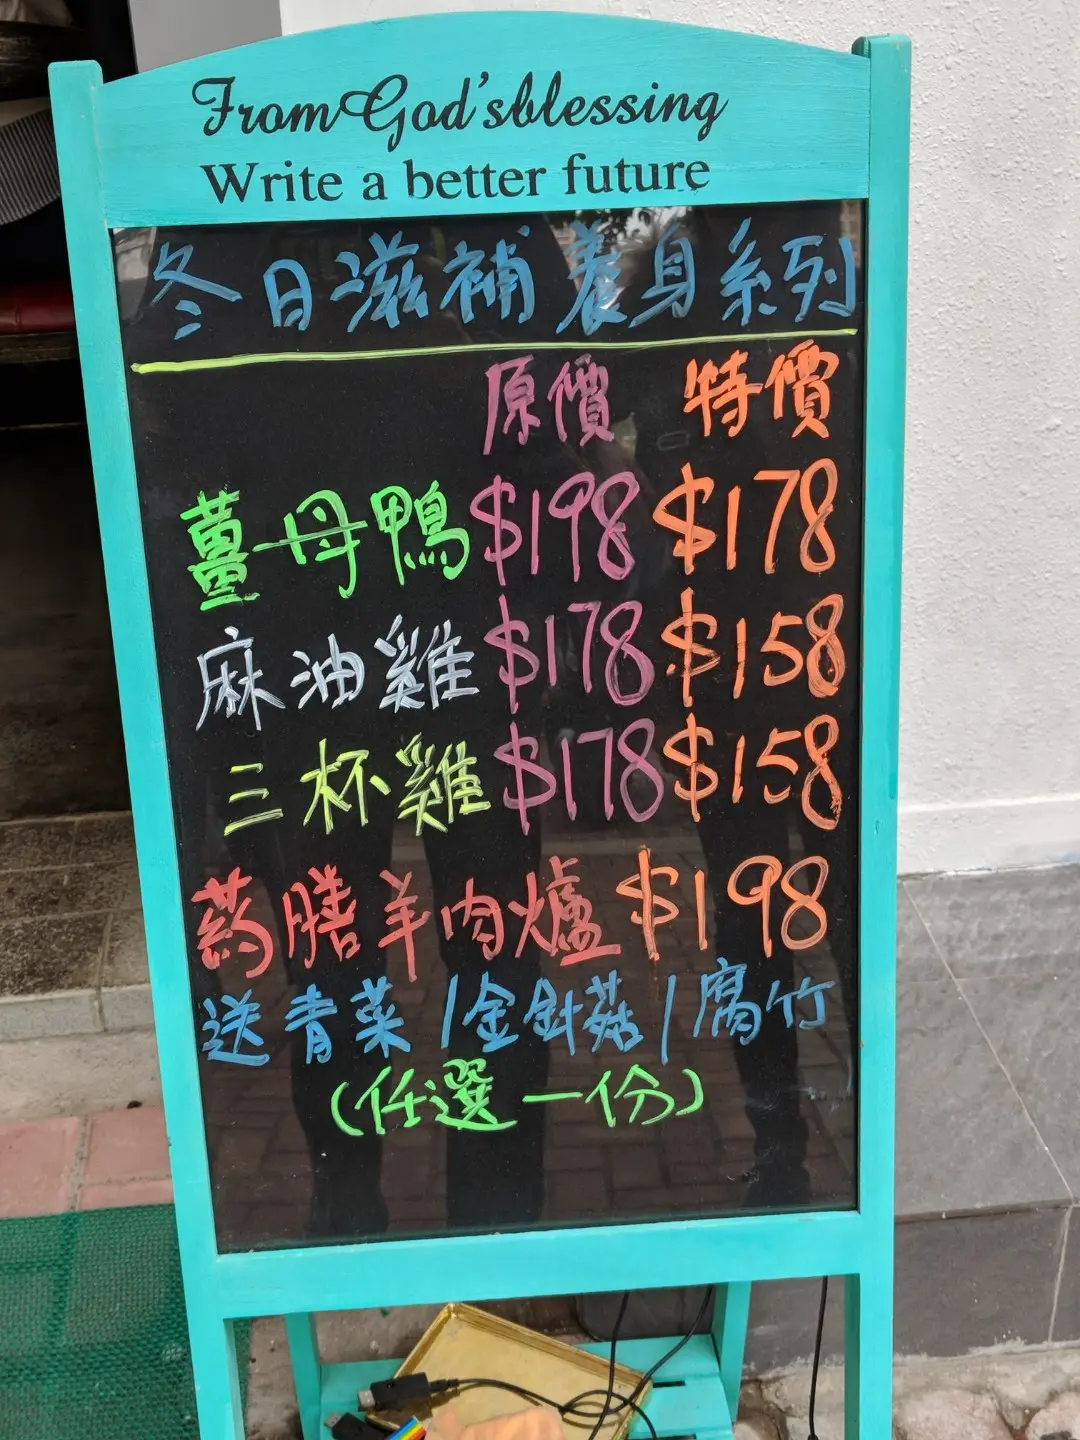 From God'sblessing
Write a better future
冬日滋補養身系列
原價 特價
薑母鴨 $198 $178
麻油雞 $178 $158
三杯雞 $178 $158
药膳羊肉爐 $198
送青菜/金針菇/腐竹
(任選一份)